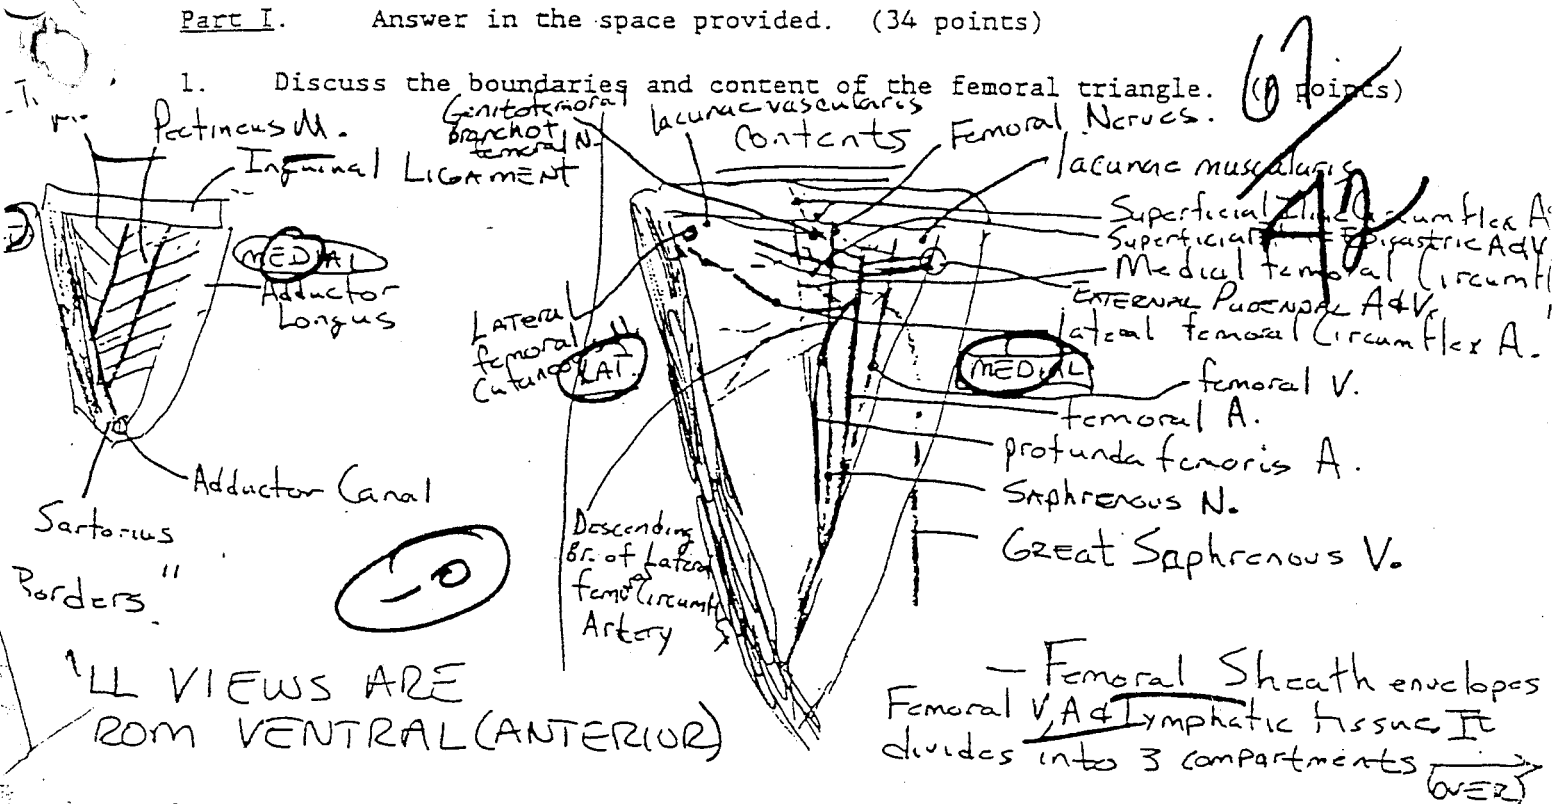 Part I. Answer in the space provided. (34 points)
1. Discuss the boundaries and content of the femoral triangle. ( points)
Pectineus M.
Inguinal LIGAMENT
MEDIAL
Adductor
Longus
Adductor Canal
Sartorius
Borders"
-0
Genitofemoral
Branch of
femoral N.
lacunae vascularis
Contents
Femoral Nerves.
lacunae muscularis
Superficial Iliac Circumflex A
Superficial Epigastric A&V
Medial femoral Circumfl
EXTERNAL PUDENDAL A&V.
lateal femoral Circumflex A.
LATERAL
femoral
Cutaneo
LAT.
MEDIAL
femoral V.
femoral A.
profunda femoris A.
SAphrenous N.
GREat Saphrenous V.
Descending
Br. of Lateral
femoral Circumfl
Artery
LL VIEWS ARE
ROM VENTRAL (ANTERIOR)
— Femoral Sheath envelopes
Femoral V, A & Lymphatic tissue. It
divides into 3 compartments
(OVER)